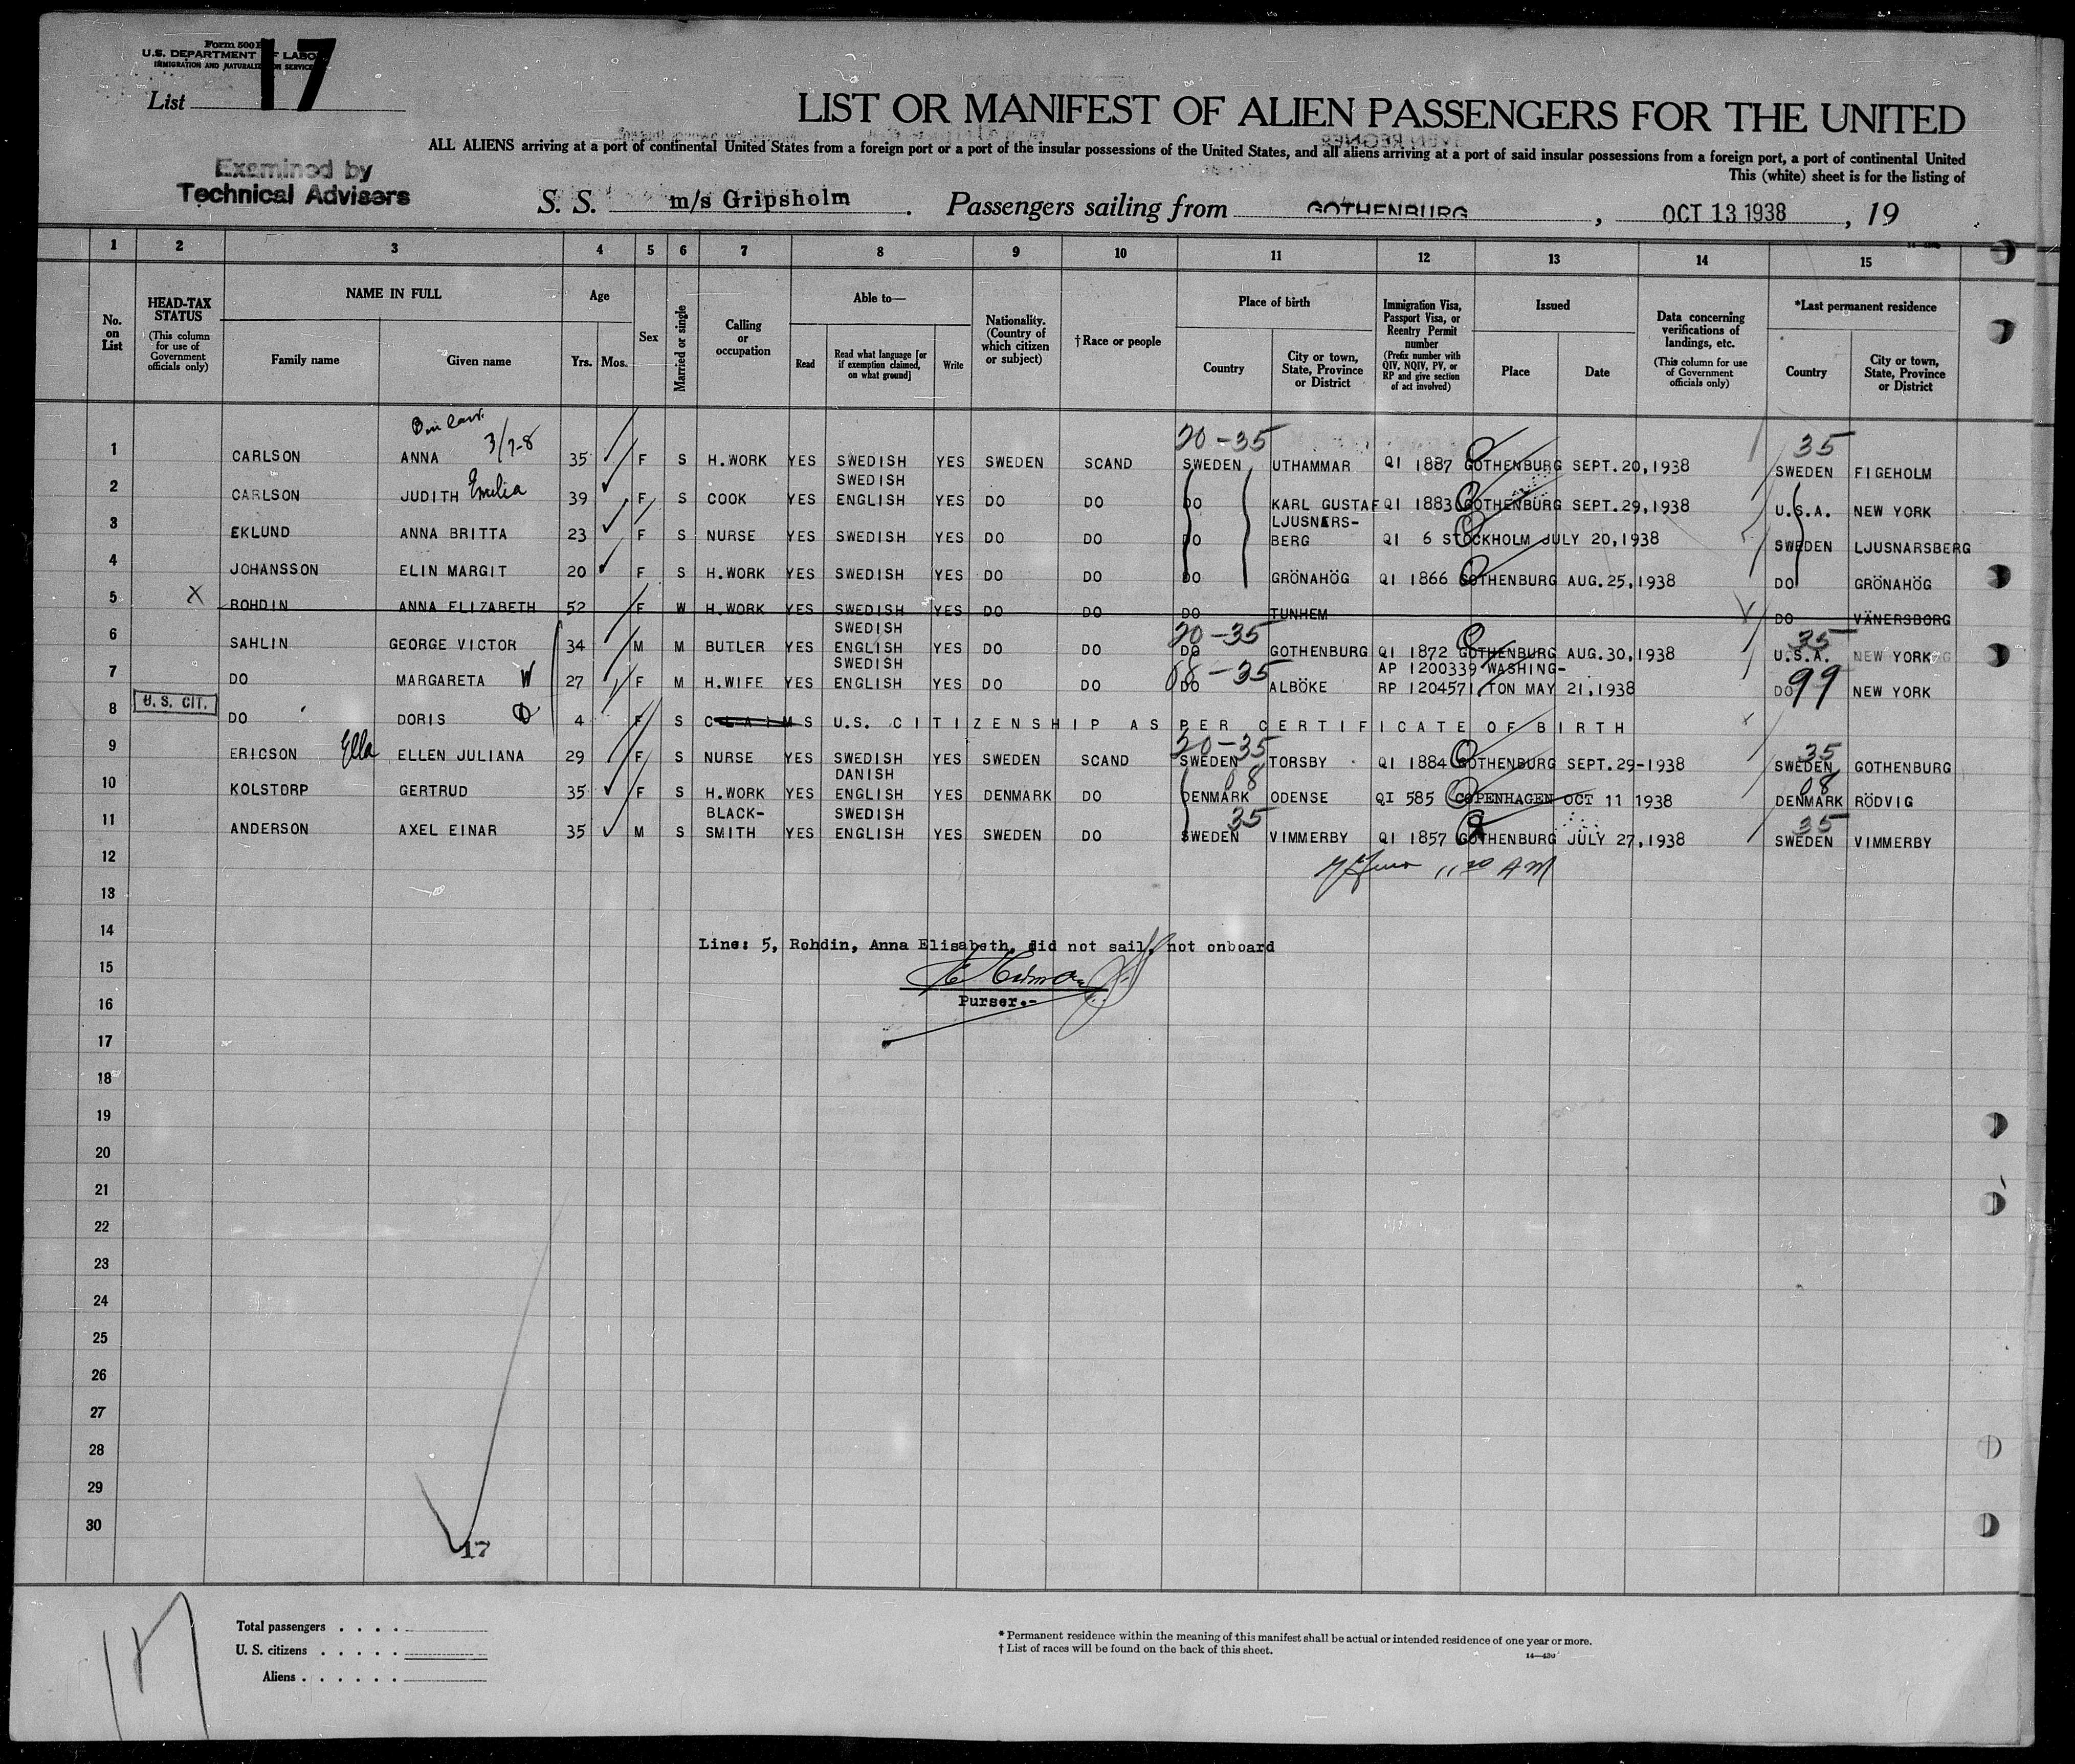 Form 500
U.S. DEPARTMENT OF LABOR
IMMIGRATION AND NATURALIZATION SERVICE
List 17
LIST OR MANIFEST OF ALIEN PASSENGERS FOR THE UNITED
ALL ALIENS arriving at a port of continental United States from a foreign port or a port of the insular possessions of the United States, and all aliens arriving at a port of said insular possessions from a foreign port, a port of continental United
This (white) sheet is for the listing of
Examined by
Technical Advisers
S. S. m/s Gripsholm. Passengers sailing from GOTHENBURG, OCT 13 1938, 19
1 2 3 4 5 6 7 8 9 10 11 12 13 14 15
No. on List
HEAD-TAX STATUS
(This column for use of Government officials only)
NAME IN FULL
Family name
Given name
Age
Yrs. Mos.
Sex
Married or single
Calling or occupation
Able to—
Read
Read what language [or if exemption claimed, on what ground]
Write
Nationality. (Country of which citizen or subject)
†Race or people
Place of birth
Country
City or town, State, Province or District
Immigration Visa, Passport Visa, or Reentry Permit number
(Prefix number with QIV, NQIV, PV, or RP and give section of act involved)
Issued
Place
Date
Data concerning verifications of landings, etc.
(This column for use of Government officials only)
*Last permanent residence
Country
City or town, State, Province or District
3/7-8 20-35 35
1 CARLSON ANNA 35 F S H.WORK YES SWEDISH YES SWEDEN SCAND SWEDEN UTHAMMAR QI 1887 GOTHENBURG SEPT.20,1938 SWEDEN FIGEHOLM
SWEDISH
2 CARLSON JUDITH Emelia 39 F S COOK YES ENGLISH YES DO DO DO KARL GUSTAF QI 1883 GOTHENBURG SEPT.29,1938 U.S.A. NEW YORK
LJUSNERS-
3 EKLUND ANNA BRITTA 23 F S NURSE YES SWEDISH YES DO DO DO BERG QI 6 STOCKHOLM JULY 20,1938 SWEDEN LJUSNARSBERG
4 JOHANSSON ELIN MARGIT 20 F S H.WORK YES SWEDISH YES DO DO DO GRÖNAHÖG QI 1866 GOTHENBURG AUG.25,1938 DO GRÖNAHÖG
5 X ROHDIN ANNA ELIZABETH 52 F W H.WORK YES SWEDISH YES DO DO DO TUNHEM DO VÄNERSBORG
SWEDISH 20-35 35
6 SAHLIN GEORGE VICTOR 34 M M BUTLER YES ENGLISH YES DO DO DO GOTHENBURG QI 1872 GOTHENBURG AUG.30,1938 U.S.A. NEW YORK
SWEDISH 08-35 AP 1200339 WASHING- 99
7 DO MARGARETA W 27 F M H.WIFE YES ENGLISH YES DO DO DO ALBÖKE RP 1204571 TON MAY 21,1938 DO NEW YORK
8 U. S. CIT. DO DORIS D 4 F S CLAIMS U.S. CITIZENSHIP AS PER CERTIFICATE OF BIRTH
20-35 35
9 ERICSON Ella ELLEN JULIANA 29 F S NURSE YES SWEDISH YES SWEDEN SCAND SWEDEN TORSBY QI 1884 GOTHENBURG SEPT.29-1938 SWEDEN GOTHENBURG
DANISH 08 08
10 KOLSTORP GERTRUD 35 F S H.WORK YES ENGLISH YES DENMARK DO DENMARK ODENSE QI 585 COPENHAGEN OCT 11 1938 DENMARK RÖDVIG
BLACK- SWEDISH 35 35
11 ANDERSON AXEL EINAR 35 M S SMITH YES ENGLISH YES SWEDEN DO SWEDEN VIMMERBY QI 1857 GOTHENBURG JULY 27,1938 SWEDEN VIMMERBY
12 11 20 AM
13
14 Line: 5, Rohdin, Anna Elisabeth, did not sail, not onboard
15
16 Purser.-
17
18
19
20
21
22
23
24
25
26
27
28
29
30
17
17
Total passengers . . . .
U. S. citizens . . . . .
Aliens . . . . . .
* Permanent residence within the meaning of this manifest shall be actual or intended residence of one year or more.
† List of races will be found on the back of this sheet.
14—430